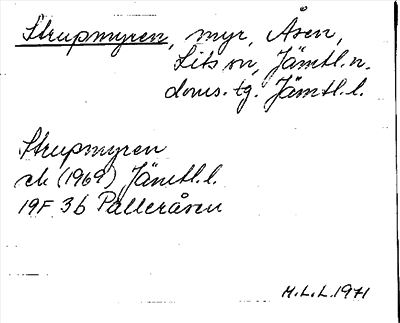 Strupmyren, myr, Åsen,
Lits sn, Jämtl. n.
doms. tg. Jämtl. l.
Strupmyren
ek (1969) Jämtl. l.
19F 3b Palleråsen
H.L.L. 1971